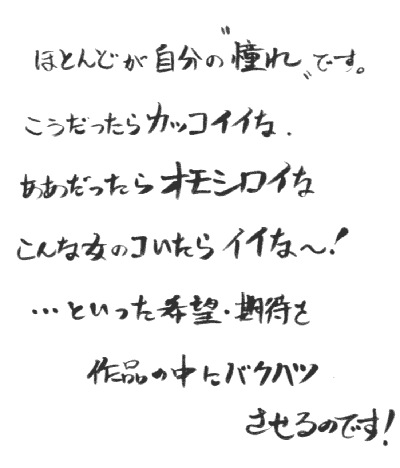 ほとんどが自分の〝憧れ〟です。
こうだったらカッコイイな.
ああだったらオモシロイな
こんな女のコいたらイイな〜!
…といった希望・期待を
作品の中にバクハツ
させるのです!